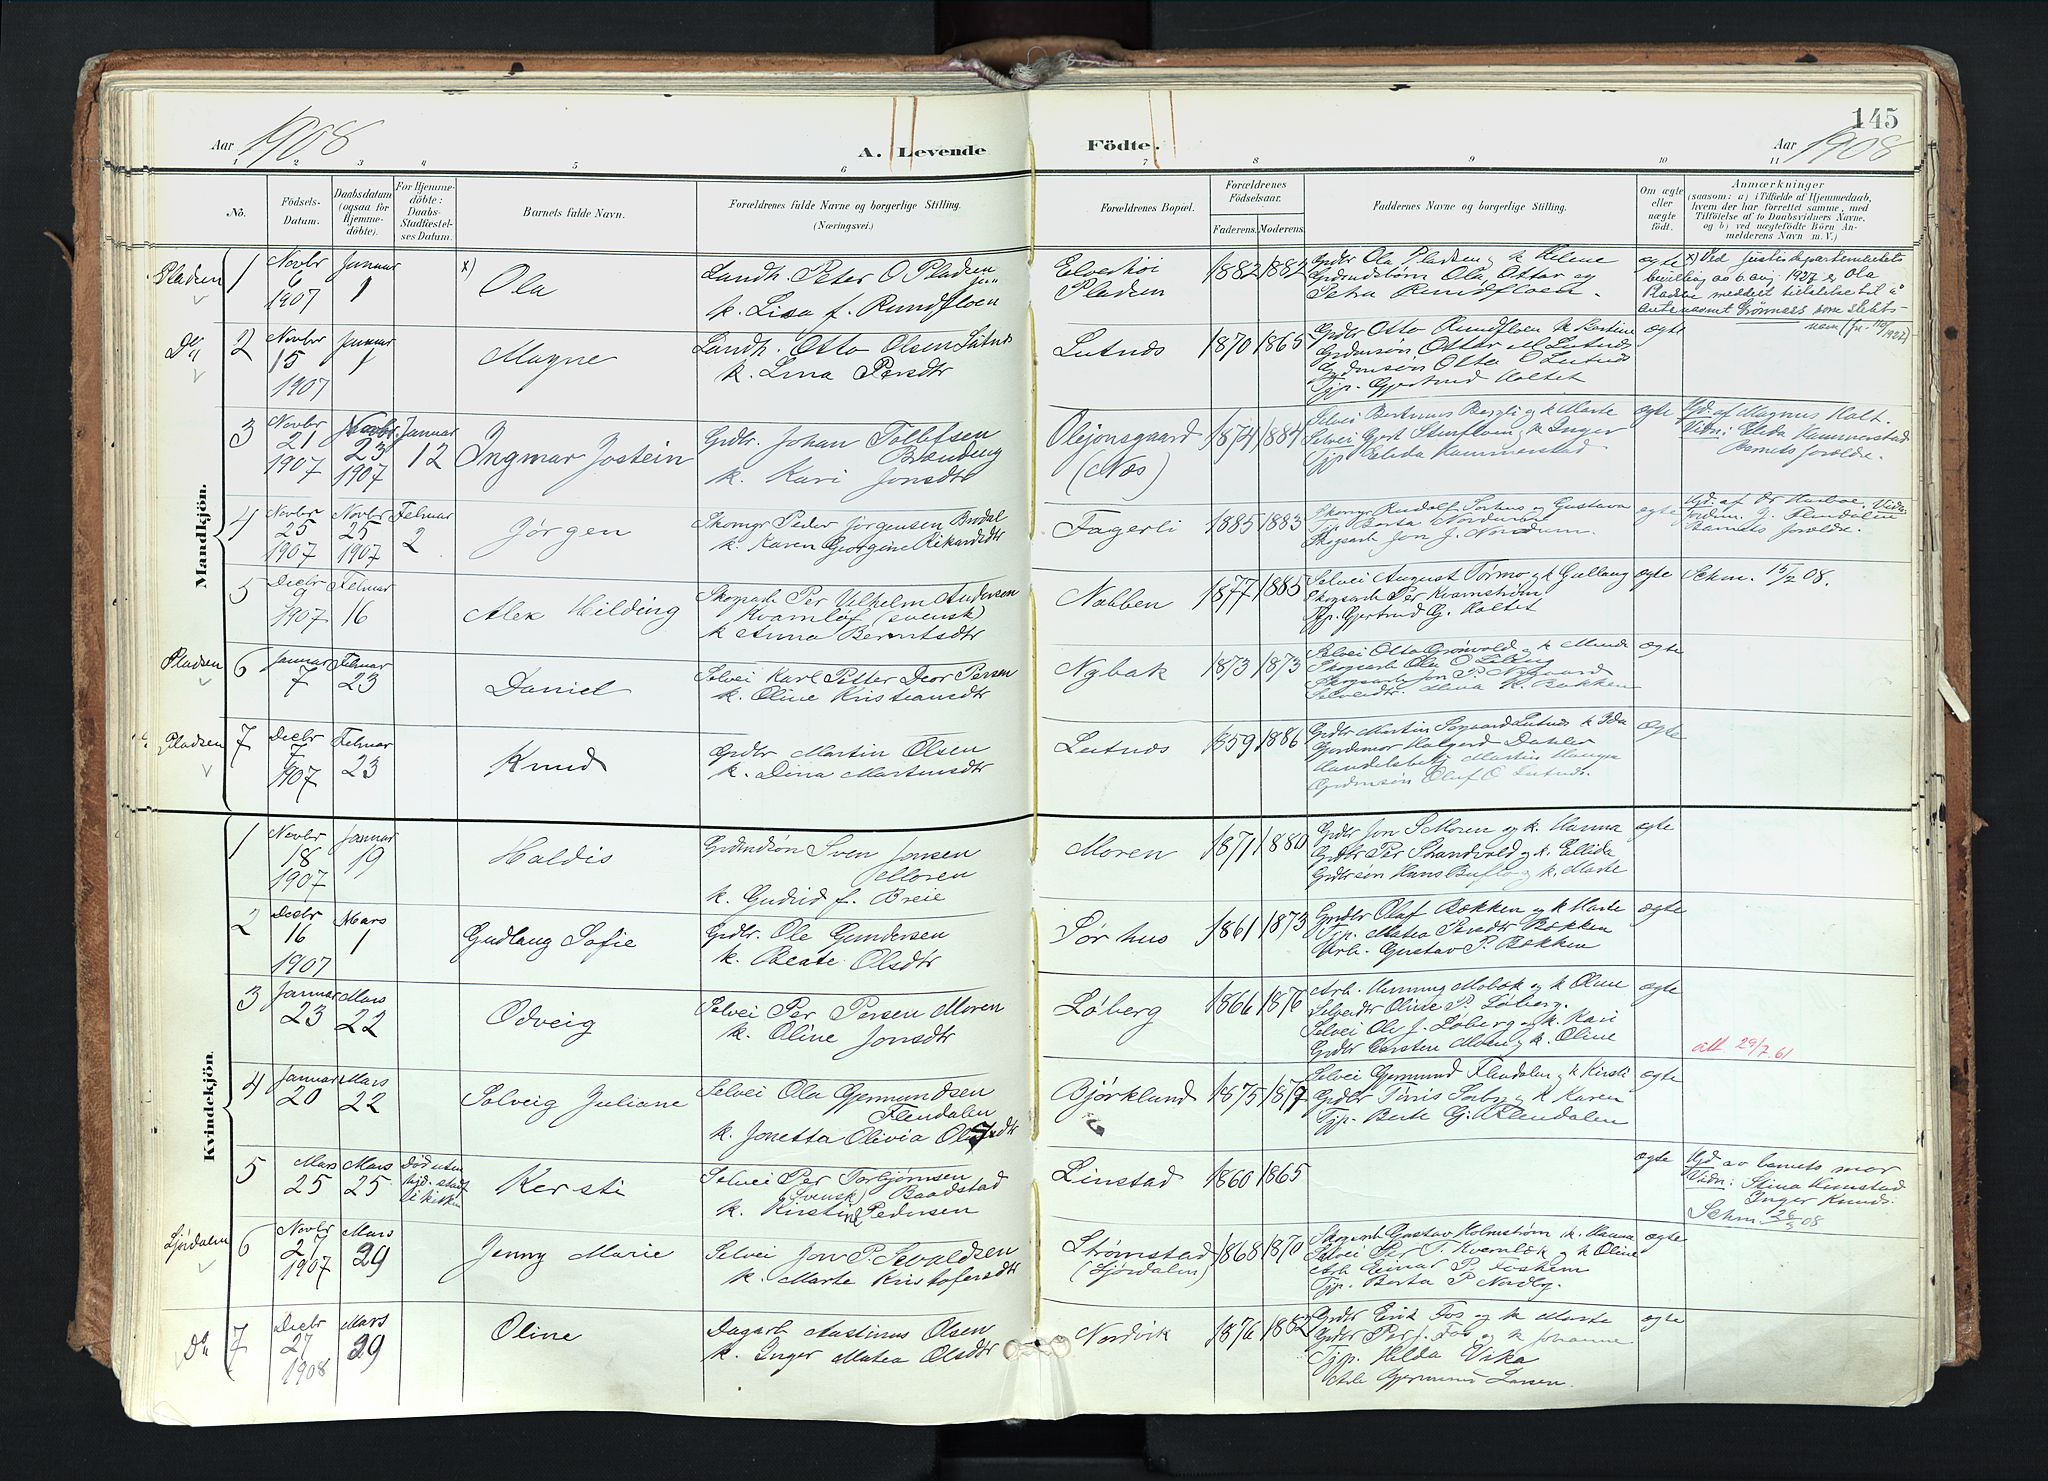 145
Aar 1908
A. Levende
Födte.
Aar 1908
1 2 3 4 5 6 7 8 9 10 11
No.
Födsels-
Datum.
Daabsdatum
(ogsaa for
Hjemme-
döbte).
For Hjemme-
döbte:
Daabs-
Stadfæstel-
ses Datum.
Barnets fulde Navn.
Forældrenes fulde Navne og borgerlige Stilling.
(Næringsvei.)
Forældrenes Bopæl.
Forældrenes
Födselsaar.
Faderens. Moderens.
Faddernes Navne og borgerlige Stilling.
Om ægte
eller
uægte
födt.
Anmærkninger
(saasom: a) i Tilfælde af Hjemmedaab,
hvem der har forrettet samme, med
Tilföielse af to Daabsvidners Navne,
og b) ved uægtefödte Börn An-
melderens Navn m. V.)
Mandkjön.
Pladsen
1
Novbr
6
1907
Januar
1
x)
Ola
Landh. Peter O Pladsen
k. Lisa f. Rundfloen
Elverhöi
Pladsen
1882 1882
Grdr Ola Pladsen og k Helene
Ola Ottar og
Petra Rundfloen.
ægte
x) Ved justisdepartementets
bevilling av 6 aug. 1927 er Ola
Pladsen meddelt tillatelse til å
anta navnet Grønnæs som slekts-
navn
Do
2
Novbr
15
1907
Januar
1
Magne
Landh. Otto Olsen Lutnæs
k. Lina Persdtr
Lutnæs
1870 1865
Grdbr Otto Rundfloen k
Ottar M Lutnæs
Otto O Lutnæs
Tjp. Gjertrud Holtet
ægte
3
Novbr
21
1907
Novbr
23
1907
Januar
12
Ingmar Jostein
Grdbr. Johan Tollefsen
Brændeng
k. Kari Jonsdtr
Olejonsgaard
(Næs)
1874 1884
Selvei Berntinus Bergli og k Marte
Selvei Gjert og k Inger
Tjp. Elida Kammerstad
ægte
Hjd. af Magnus Holt.
Vidn: Elida Kammerstad
Barnets forældre.
4
Novbr
25
1907
Novbr
25
1907
Februar
2
Jørgen
Peder Jørgensen Bredal
k. Karen Georgine Rikardsdtr
Fagerli
1885 1883
Rudolf Sørhus og Gustava
Tjp. Berta Nordmoe
Skogsarb Jon J. Nordum.
ægte
Hjd. af Dr Harboe. Vidn:
Jordm. J. Flendalen
Barnets forældre.
5
Decbr
9
1907
Februar
16
Alex Hilding
Skogsarb Per Vilhelm Andersen
Kvarnlöf (svensk)
k Anna Berntsdtr
Nabben
1877 1885
Selvei August Tørmo og k Gullaug
Skogsarb Per Kvarnstrøm
Tjp. Gjertrud G. Holtet
ægte
Schm. 15/2 08.
Pladsen
6
Januar
7
Februar
23
Daniel
Selvei Karl Petter Persen
k. Oline Kristiansdtr
Nybak
1873 1873
Selvei Otto Grønvold og k
Skogsarb Ola O
Skogsarb Jon P. Nygaard
Mina K. Bakken
ægte
Pladsen
7
Decbr
7
1907
Februar
23
Knud
Grdbr Martin Olsen
k. Dina Martinusdtr
Lutnæs
1859 1886
Grdbr Martin Lutnæs k Ida
Gardemor Halgerd Dahler
Handelsbetj Martin Hauge
Olaf O Lutnæs
ægte
Kvindekjön.
1
Novbr
18
1907
Januar
19
Haldis
Sven Jonsen
Moren
k. Gudrid f. Breie
Moren
1871 1880
Grdbr Jon S Moren og k. Hanna
Grdbr Per Strandvold og k. Ellida
Hans og k. Marte
ægte
2
Decbr
16
1907
Mars
1
Gudlaug Sofie
Grdbr. Ole Gundersen
k. Beate Olsdtr
Sørhus
1861 1873
Grdbr Olaf Bækken og k Marte
Tjp. Matea Persdtr Bækken
Arb. Gustav P. Bækken
ægte
3
Januar
23
Mars
22
Odveig
Selvei Per Persen Moren
k. Oline Jonsdtr
Løberg
1866 1876
Arb. Henning Mobæk og k Oline
Oline P. Løberg.
Selvei Ole J. Løberg og k. Kari
Grdbr Carsten Moren og k. Oline
ægte
att. 29/7.61
4
Januar
20
Mars
22
Solveig Juliane
Selvei Ola Gjermundsen
Flendalen
k. Jonetta Olivia
Bjørklund
1875 1877
Selvei Gjermund Flendalen og k Kirsti
Grdbr Tønis Sørby og k Karen
Tjp. Berte G. Flendalen
ægte
5
Mars
25
Mars
25
Død uten
hjd. stadf
i kirken
Kersti
Selvei Per Torbjørnsen
(svensk) Baadstad
k. Kirstine Pedersen
Linstad
1860 1865
ægte
Hjd av barnets mor
Vidn: Stina Linstad
Inger Knuds
Schm 26/3 08
Ljørdalen
6
Novbr
27
1907
Mars
29
Jenny Marie
Selvei Jon P. Sevaldsen
k. Marte Kristofersdtr
Strømstad
(Ljørdalen)
1868 1870
Skogsarb Gustav Holmstrøm k. Hanna
Selvei Per T. Kvernbæk og k Oline
Arb Einar P. Joshem
Tjp. Berta P Nordby.
ægte
Do
7
Decbr
27
1908
Mars
29
Oline
Dagarb Austinus Olsen
k. Inger Matea Olsdtr
Nordvik
1876 1882
Grdbr Erik Fos og k Marte
Grdbr Per J. Fos og k Johanne
Tjp. Hilda Vika
Arb Gjermund Larsen.
ægte